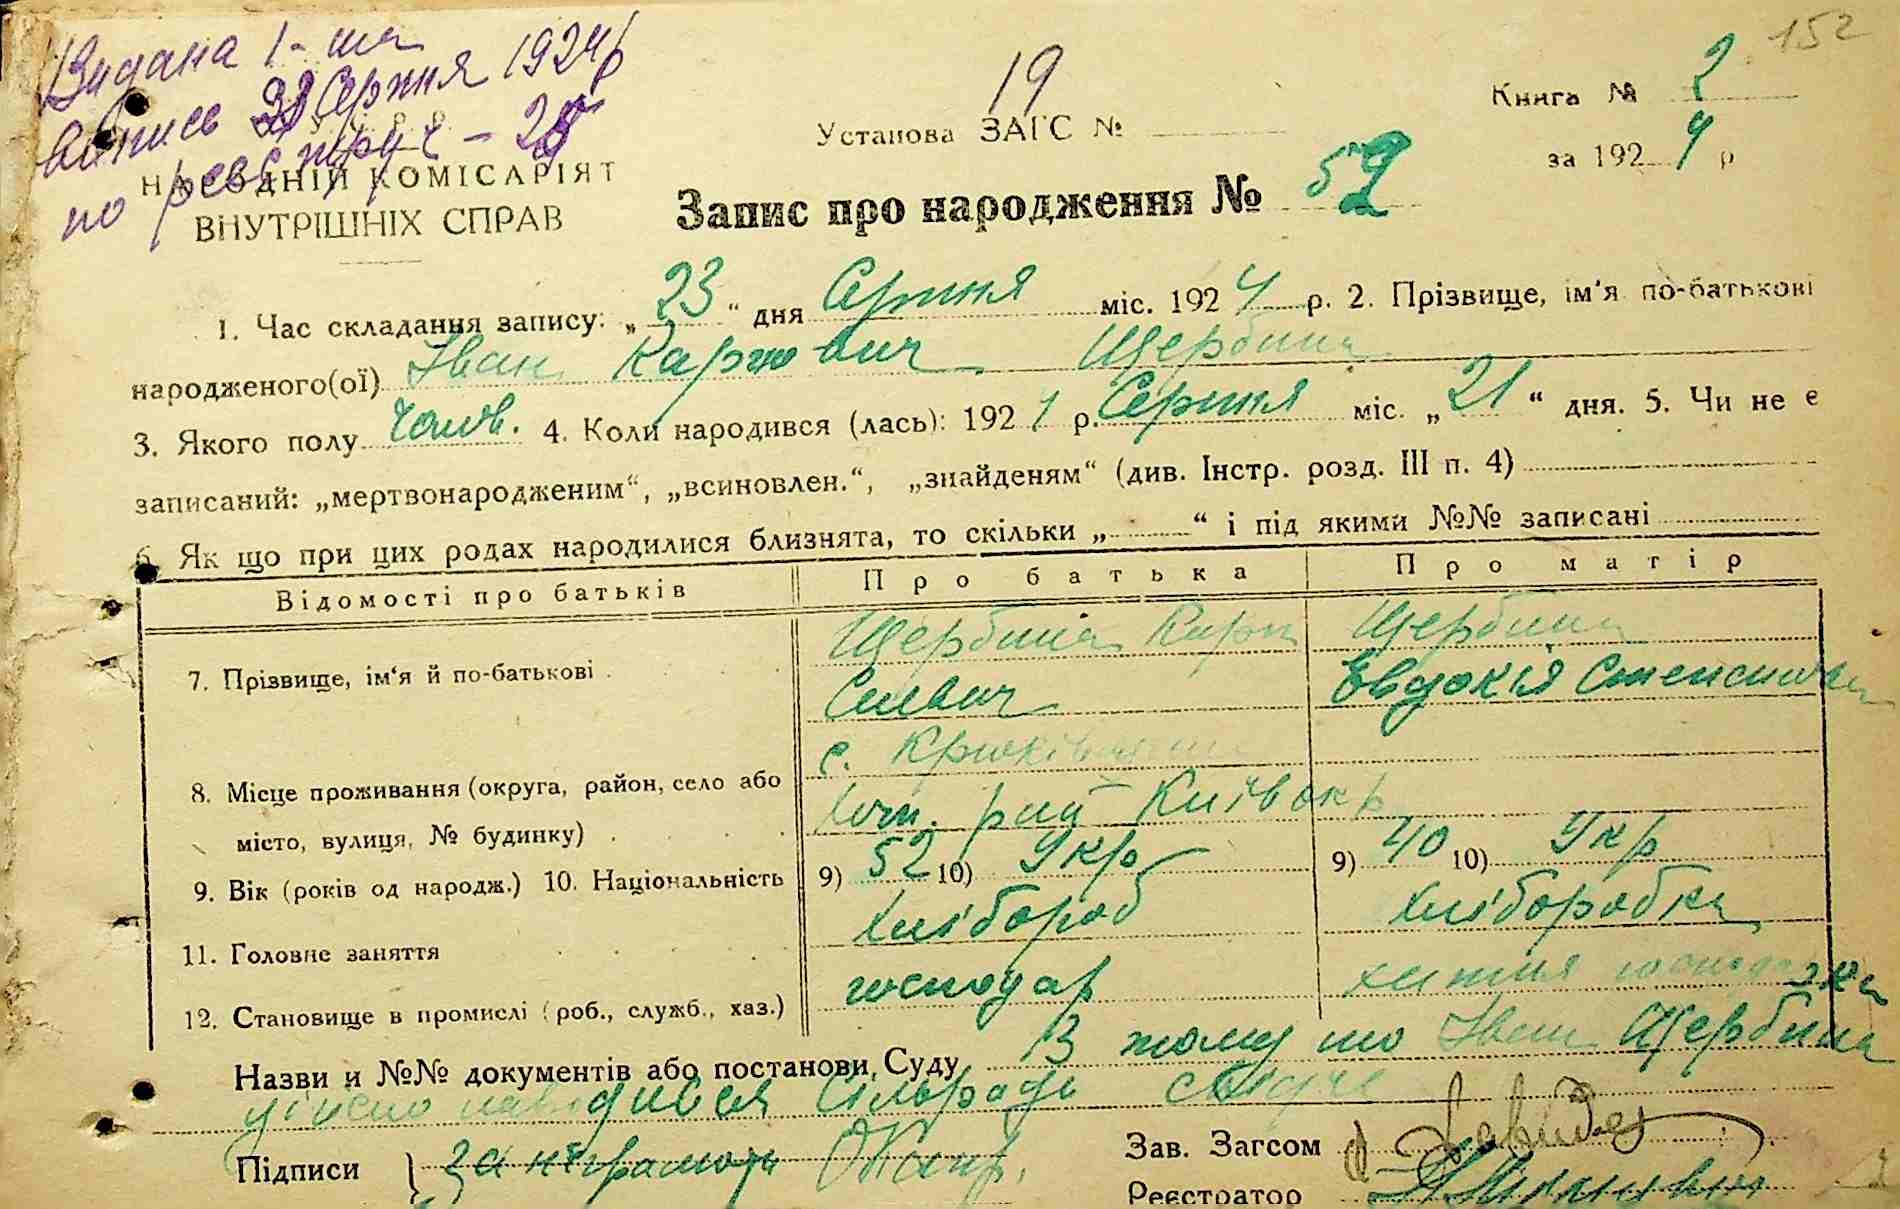 152
Видана 1-ша
Випись 28 Серпня 1924 р
по реєстру ч - 25
19
Книга № 2
Установа ЗАГС №
за 1924 р
У.С.Р.Р.
НАРОДНІЙ КОМІСАРІЯТ
ВНУТРІШНІХ СПРАВ
Запис про народження № 52
1. Час складання запису: „23“ дня Серпня міс. 1924 р. 2. Прізвище, ім'я по-батькові
народженого(ої) Іван Карпович Щербина
3. Якого полу чолов. 4. Коли народився (лась): 1924 р. Серпня міс. „21“ дня. 5. Чи не є
записаний: „мертвонародженим“, „всиновлен.“, „знайденям“ (див. Інстр. розд. III п. 4)
6. Як що при цих родах народилися близнята, то скільки „ “ і під якими №№ записані
Відомості про батьків Про батька Про матір
7. Прізвище, ім'я й по-батькові Щербина Карп Щербина
Силвич Євдокія Степановна
с. Крюківщина
8. Місце проживання (округа, район, село або
місто, вулиця, № будинку) рай Київ окр
9. Вік (років од народж.) 10. Національність 9) 52 10) Укр 9) 40 10) Укр
11. Головне заняття хлібороб хліборобка
12. Становище в промислі (роб., служб., хаз.) господар хатня господарка
Назви й №№ документів або постанови Суду В тому що Іван Щербина
дійсно народився Сільрада свідче
Підписи } за неграмотн
Зав. Загсом
Реєстратор